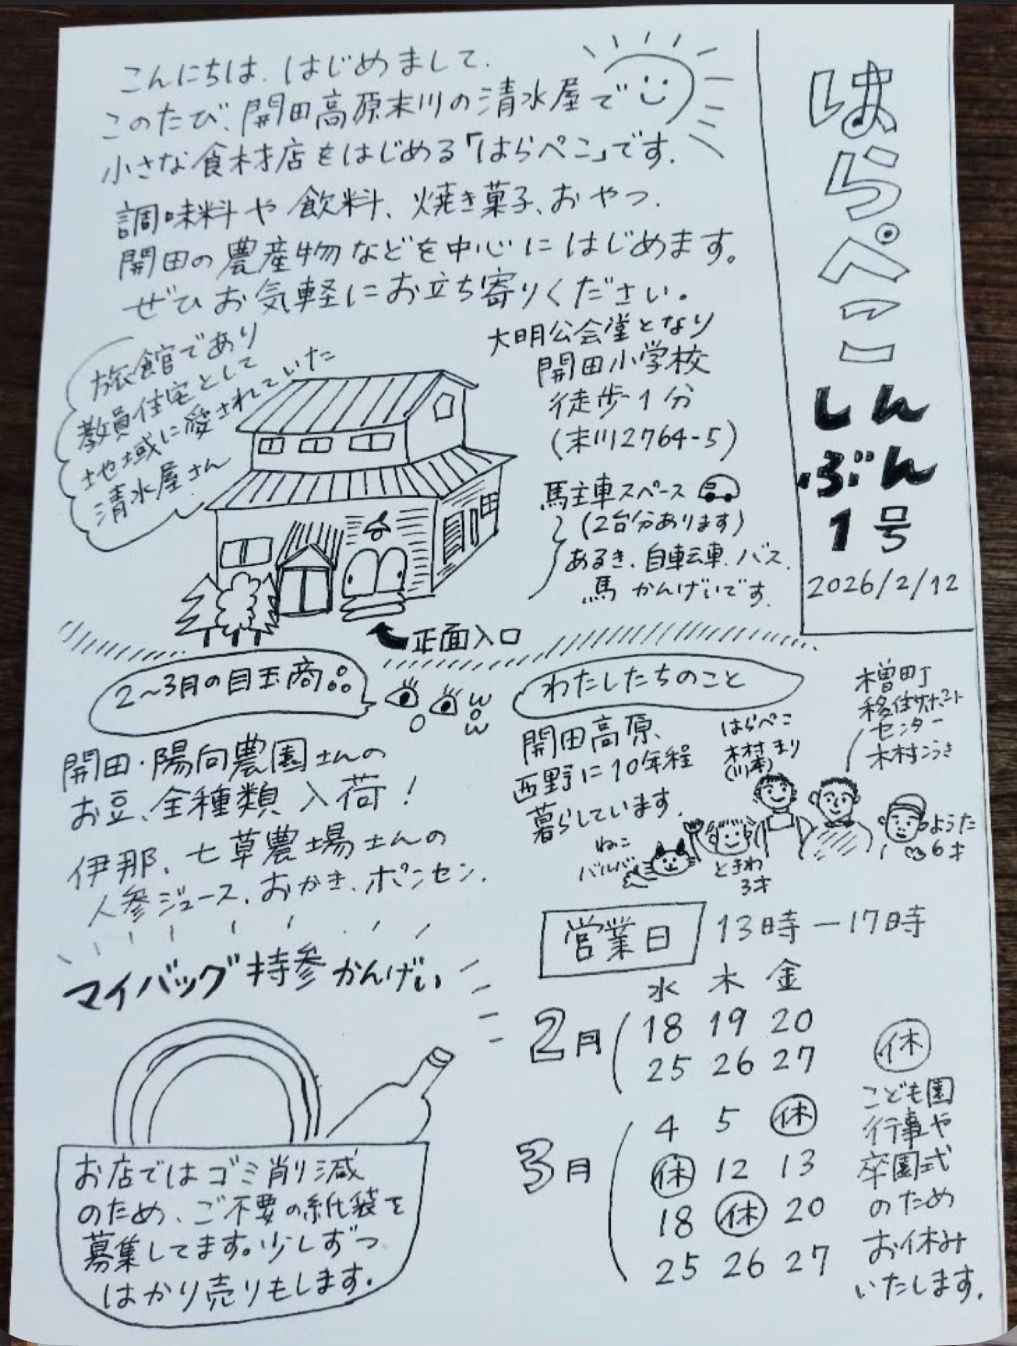 はらぺこ
しんぶん
1号
2026/2/12
こんにちは、はじめまして、
このたび、開田高原末川の清水屋で
小さな食材店をはじめる「はらぺこ」です。
調味料や飲料、焼き菓子、おやつ、
開田の農産物などを中心にはじめます。
ぜひお気軽にお立ち寄りください。
旅館であり
教員住宅として
地域に愛されていた
清水屋さん
大明公会堂となり
開田小学校
徒歩1分
(末川2764-5)
馬主車スペース
(2台分あります)
あるき、自転車、バス、
馬 かんげいです。
正面入口
2〜3月の目玉商品
wow
開田・陽向農園さんの
お豆、全種類入荷!
伊那、七草農場さんの
人参ジュース、おかき、ポンセン、
マイバッグ持参かんげい
お店ではゴミ削減
のため、ご不要の紙袋を
募集してます。少しずつ
はかり売りもします。
わたしたちのこと
開田高原、
西野に10年程
暮らしています。
はらぺこ
木村まり
(川本)
木曽町
移住サポート
センター
木村こうき
ねこ
バルバ
ときわ
3才
ようた
6才
営業日 13時ー17時
水 木 金
2月 18 19 20
25 26 27
3月 4 5 休
休 12 13
18 休 20
25 26 27
休
こども園
行事や
卒園式
のため
お休み
いたします。